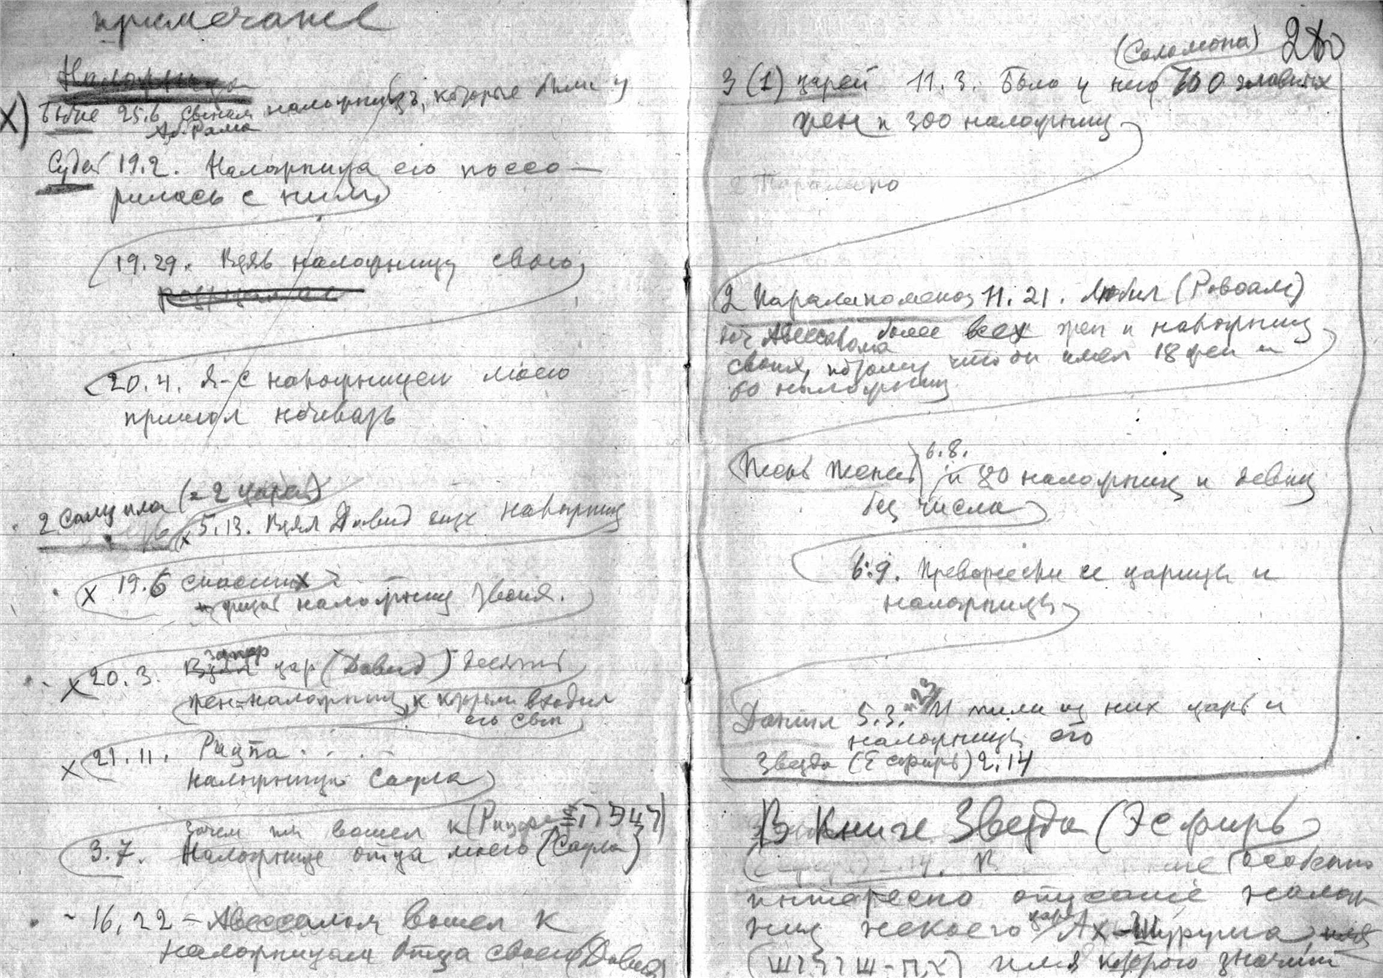 примечание
Х) Бытие 25.6 сынам наложниц, которые были у
Аврама
Судей 19.2. Наложница его поссо—
рилась с ним
19.29. Взяв наложницу свою,
20.4. Я-с наложницей моею
пришол ночевать
2 Самуила (=2 царей)
х 5.13. Взял Давид еще наложниц
х 19.6 спасших
наложниц твоих.
х 20.3. Взял царь (Давид) десять
жен-наложниц, к которым входил
его сын
х 21.11. Рицпа . . .
наложница Саула
Зачем ты вошел к (Рицпе
3.7. Наложнице отца моего (Саула)
~ 16.22 – Авессалом вошел к
наложницам отца своего (Давида
(Соломона)
3 (1) царей 11.3. Было у него 700 главных
жен и 300 наложниц
2 Паралипо
2 Паралипоменон 11.21. Любил (Ровоам)
дочь Авессалома более всех жен и наложниц
своих, потому что он имел 18 жен и
60 наложниц
Песнь Песней 6.8. и 80 наложниц и девиц
без числа
6:9. Превознесли ее царицы и
наложницы
Даниил 5.3. и 23 И пили из них царь и
наложницы его
Звезда (Есфирь) 2.14
В Книге Звезда (Эсфирь)
особенно
интересно описание налож
ниц некоего царя Ах-Шуруша
имя которого значит